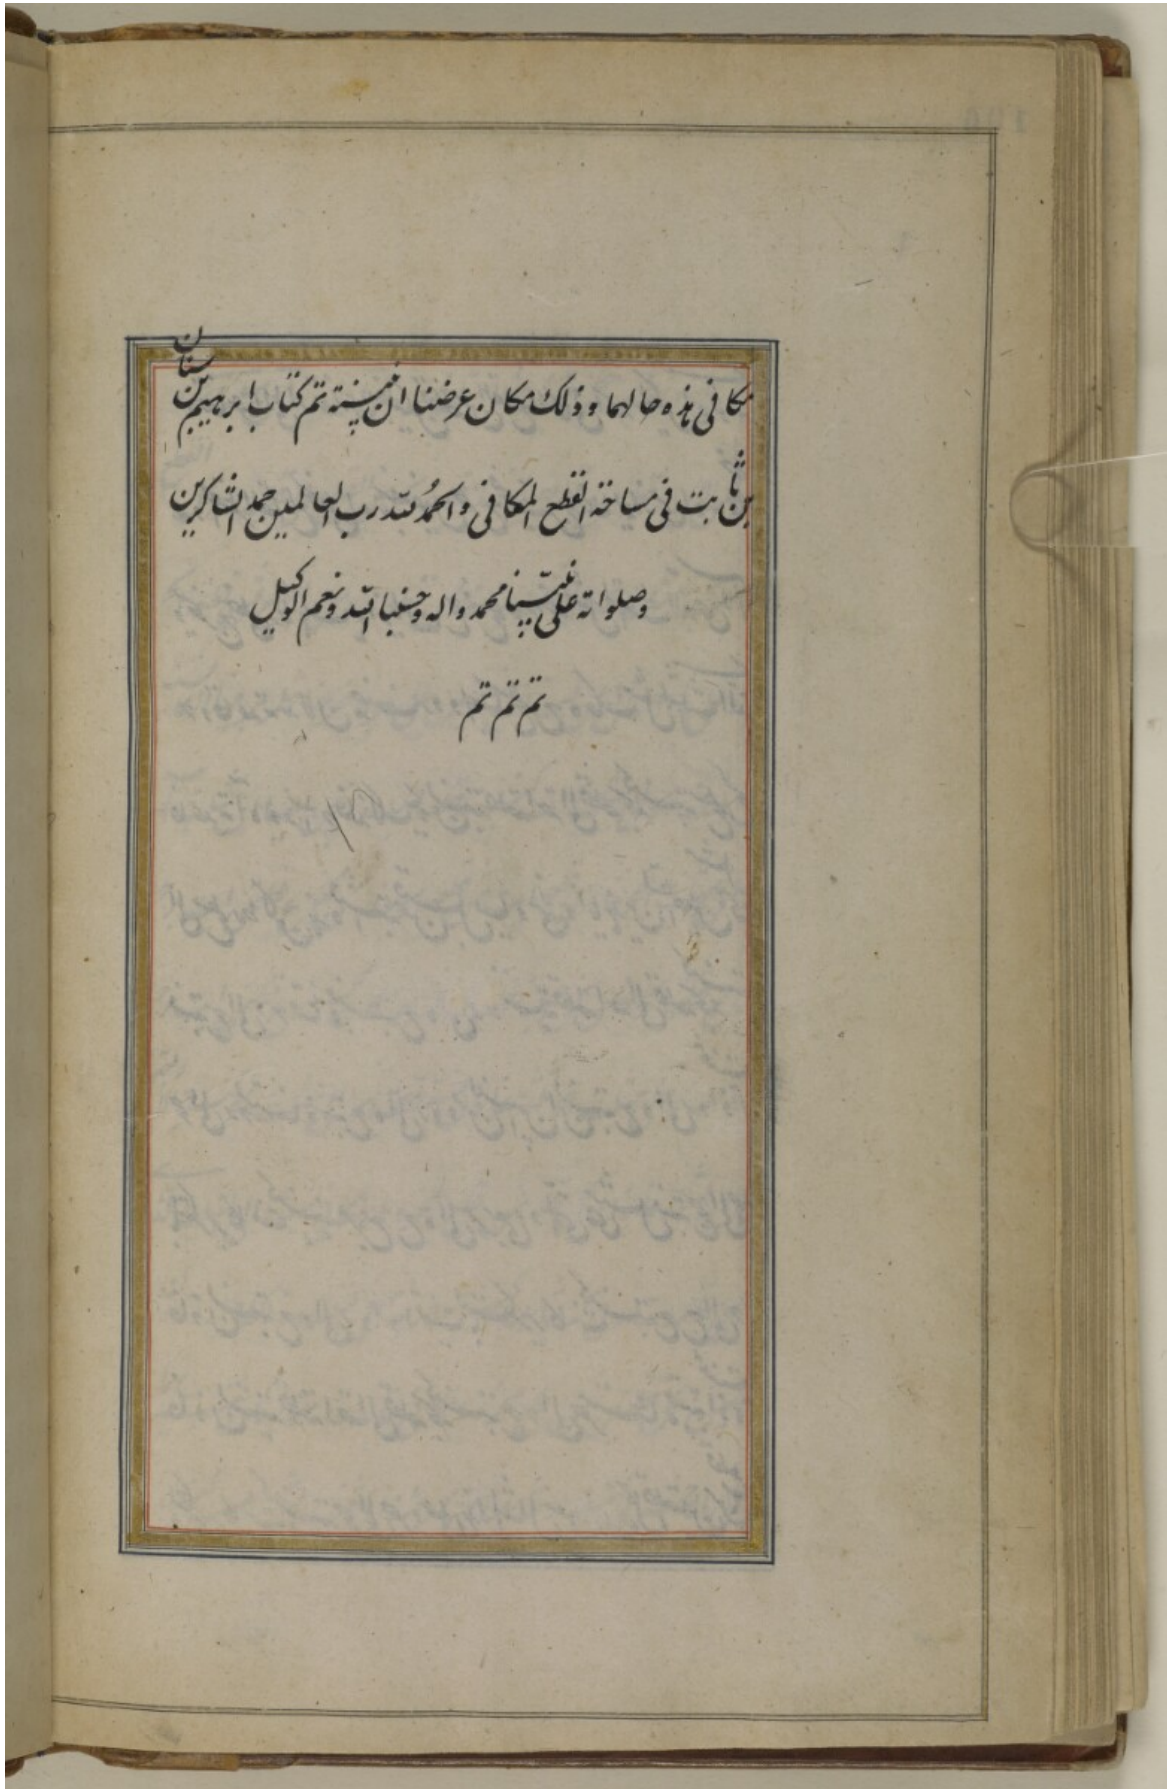 مكافى هذه حالهما وذلك مكان عرضنا ان نبينه تم كتاب ابرهيم بن سنان
بن ثابت فى مساحة القطع المكافى والحمد لله رب العالمين حمد الشاكرين
وصلواته على نبينا محمد واله وحسبنا الله ونعم الوكيل
تم تم تم